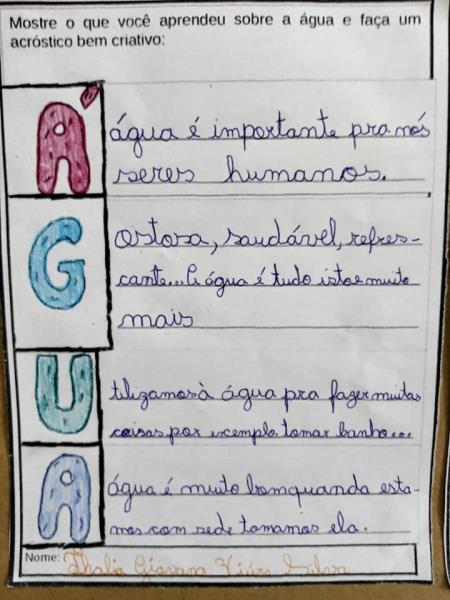 Mostre o que você aprendeu sobre a água e faça um
acróstico bem criativo:
Á
água é importante pra nós
seres humanos.
G
ostosa, saudável, refres-
cante... A água é tudo isto e muito
mais
U
tilizamos à água pra fazer muitas
coisas por exemplo tomar banho...
A
água é muito bom quanda esta-
mos com sede tomamos ela.
Nome: Thalia Giovana Silva